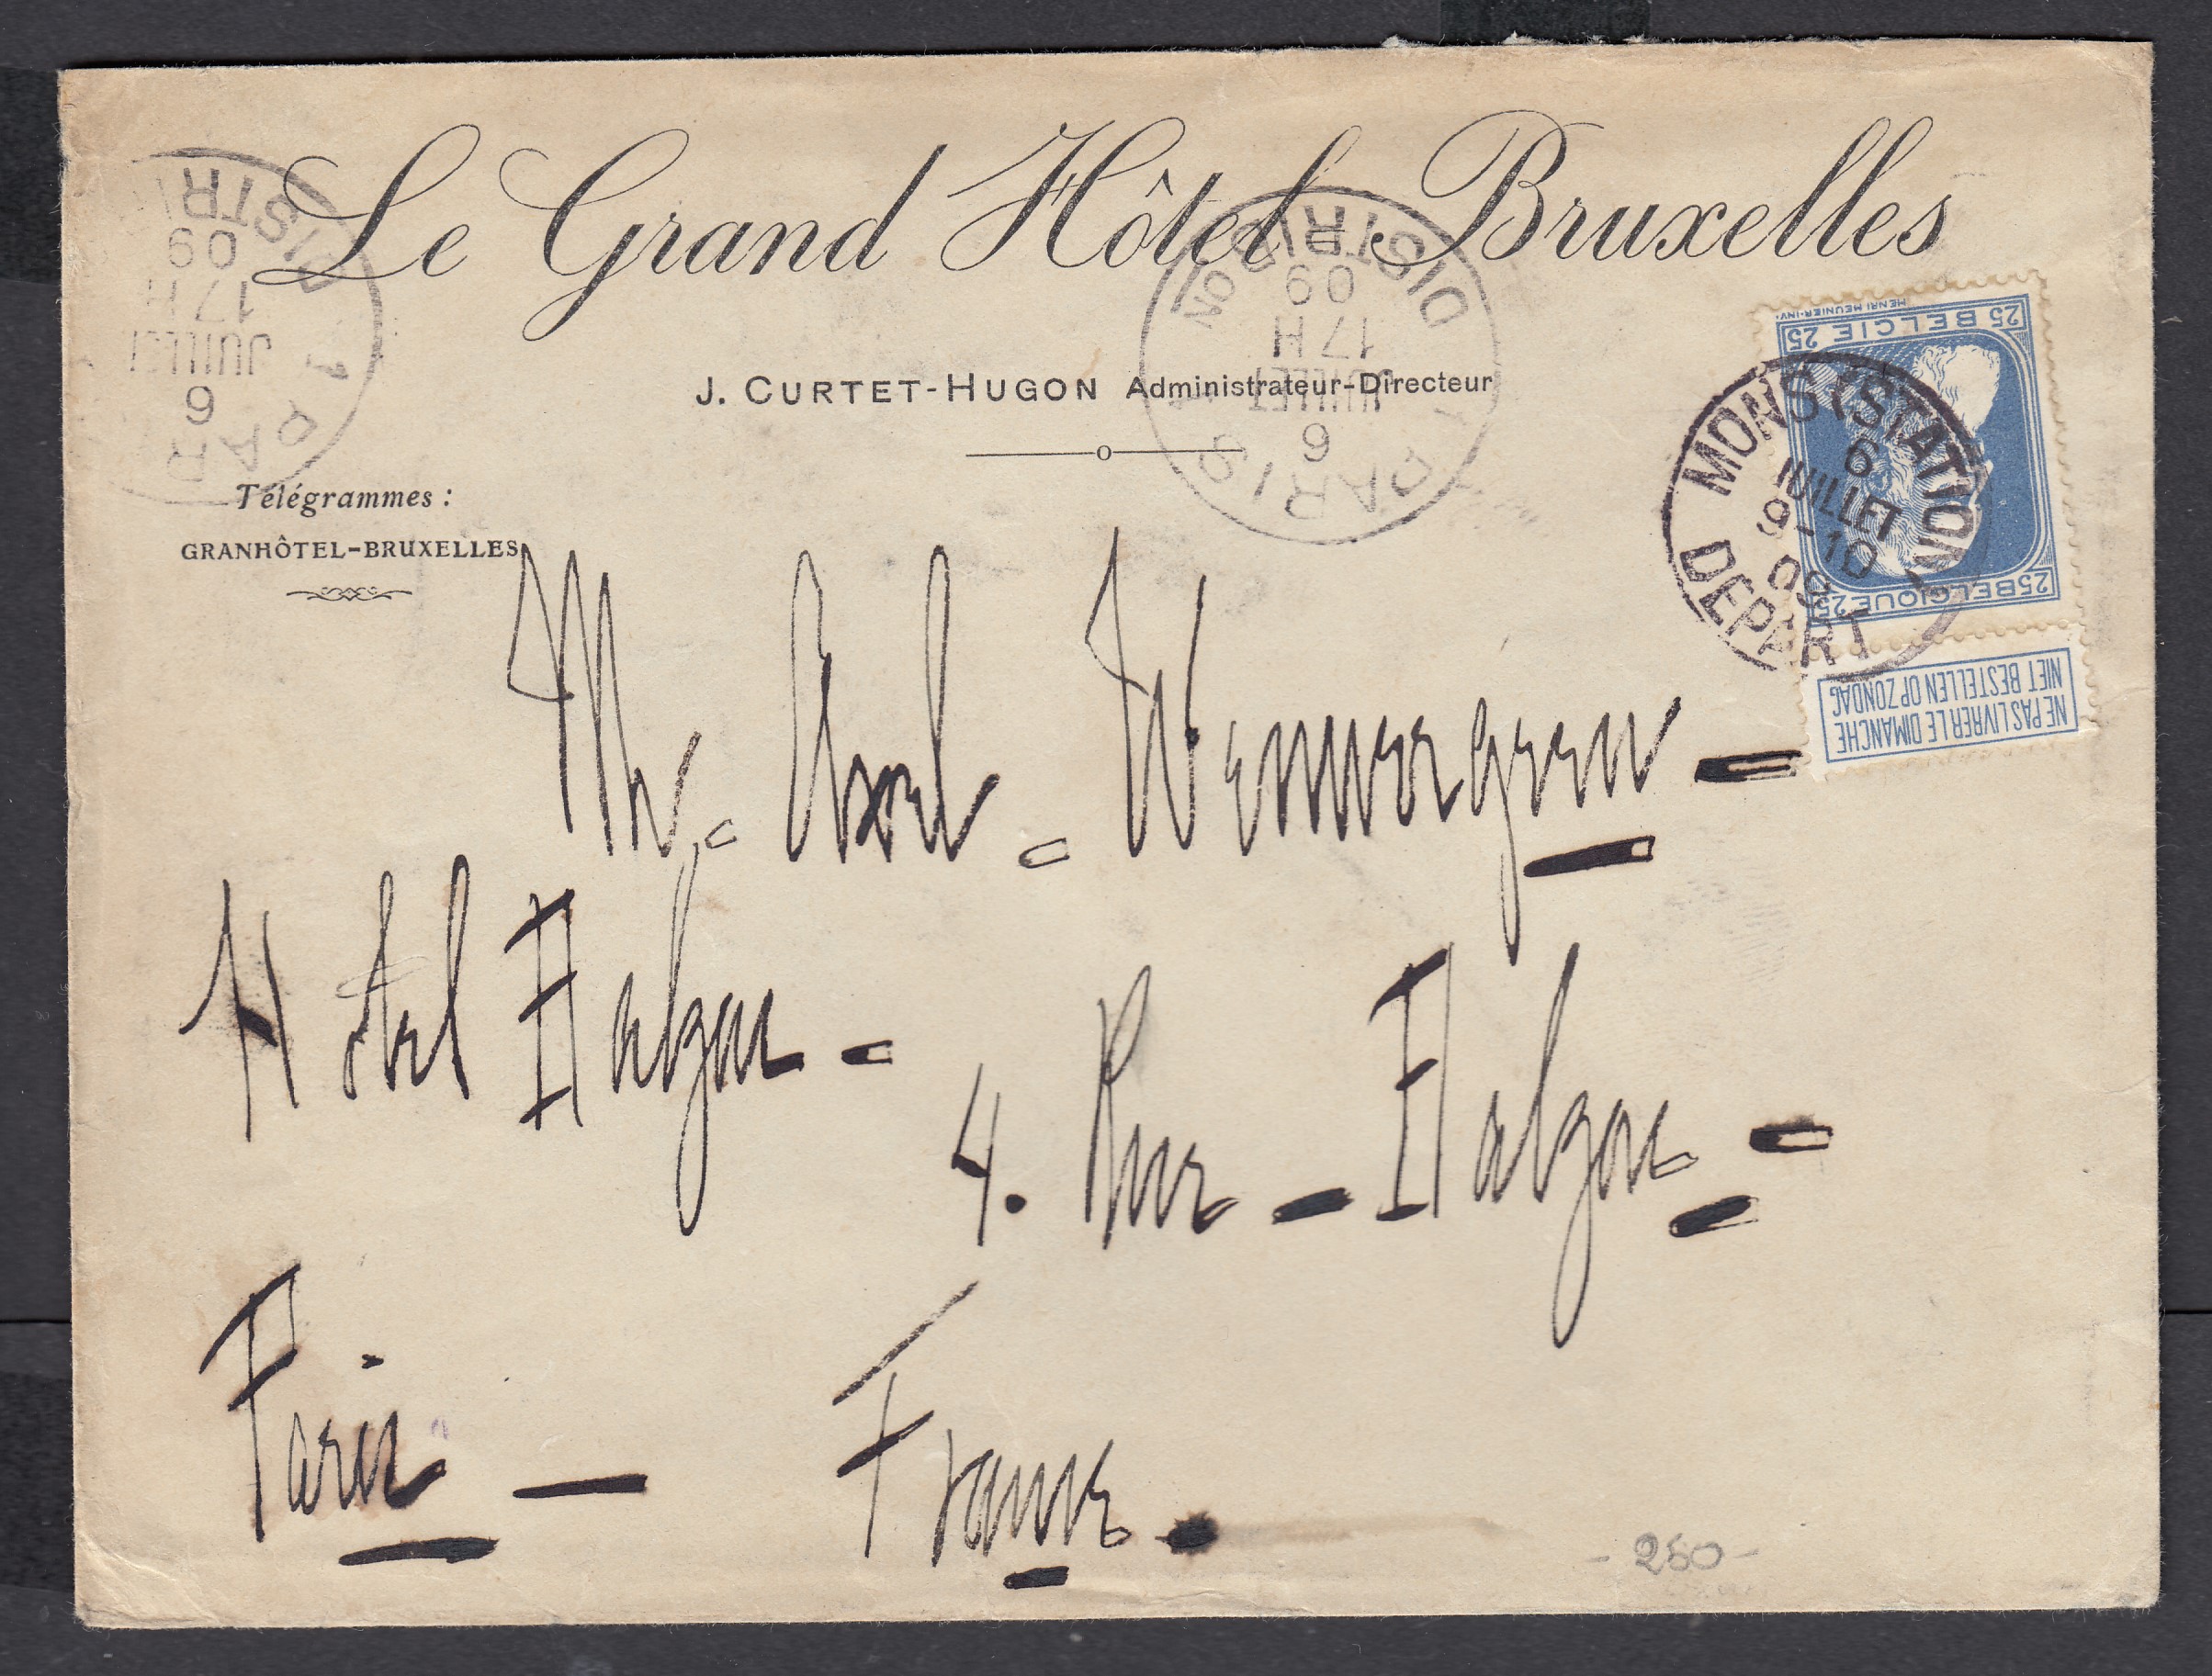 Le Grand Hôtel Bruxelles
J. CURTET-HUGON Administrateur-Directeur
Télégrammes :
GRANHÔTEL-BRUXELLES
PARIS
DISTRIB
09
17H
JUILLET
6
PAR
DISTRI
09
17H
JUILLET
6
MONS (STATION)
6
JUILLET
9-10
09
DEPART
25 BELGIQUE 25
25 BELGIE 25
HENRI MEUNIER·INV.
NE PAS LIVRER LE DIMANCHE
NIET BESTELLEN OP ZONDAG
Mr. Axel Wennergren
Hotel Balzac
4. Rue Balzac
Paris — France.
- 250 -